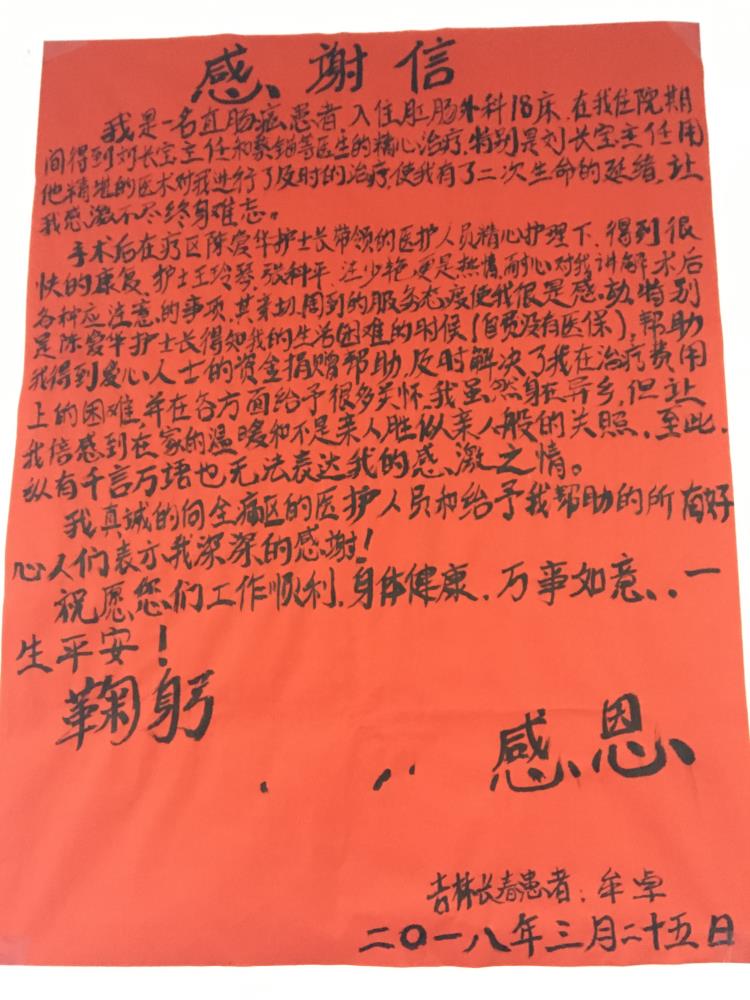 感谢信
我是一名直肠癌患者，入住肛肠外科18床，在我住院期
间得到刘长宝主任和蔡钿等医生的精心治疗，特别是刘长宝主任用
他精堪的医术对我进行了及时的治疗，使我有了二次生命的延续，让
我感激不尽终身难忘。
手术后在疗区陈爱华护士长带领的医护人员精心护理下，得到很
快的康复，护士王玲琴，张科平，汪少艳更是热情而耐心对我讲解术后
各种应注意的事项，其亲切，周到的服务态度使我很是感动，特别
是陈爱华护士长得知我的生活困难的时候（自费没有医保），帮助
我得到爱心人士的资金捐赠帮助，及时解决了我在治疗费用
上的困难，并在各方面给予很多关怀，我虽然身在异乡，但让
我倍感到在家的温暖和不是亲人胜似亲人般的关照，至此，
纵有千言万语也无法表达我的感激之情。
我真诚的向全病区的医护人员和给予我帮助的所有好
心人们表示我深深的感谢！
祝愿您们工作顺利，身体健康，万事如意、、一
生平安！
鞠躬
感恩
吉林长春患者：牟卓
二〇一八年三月二十五日